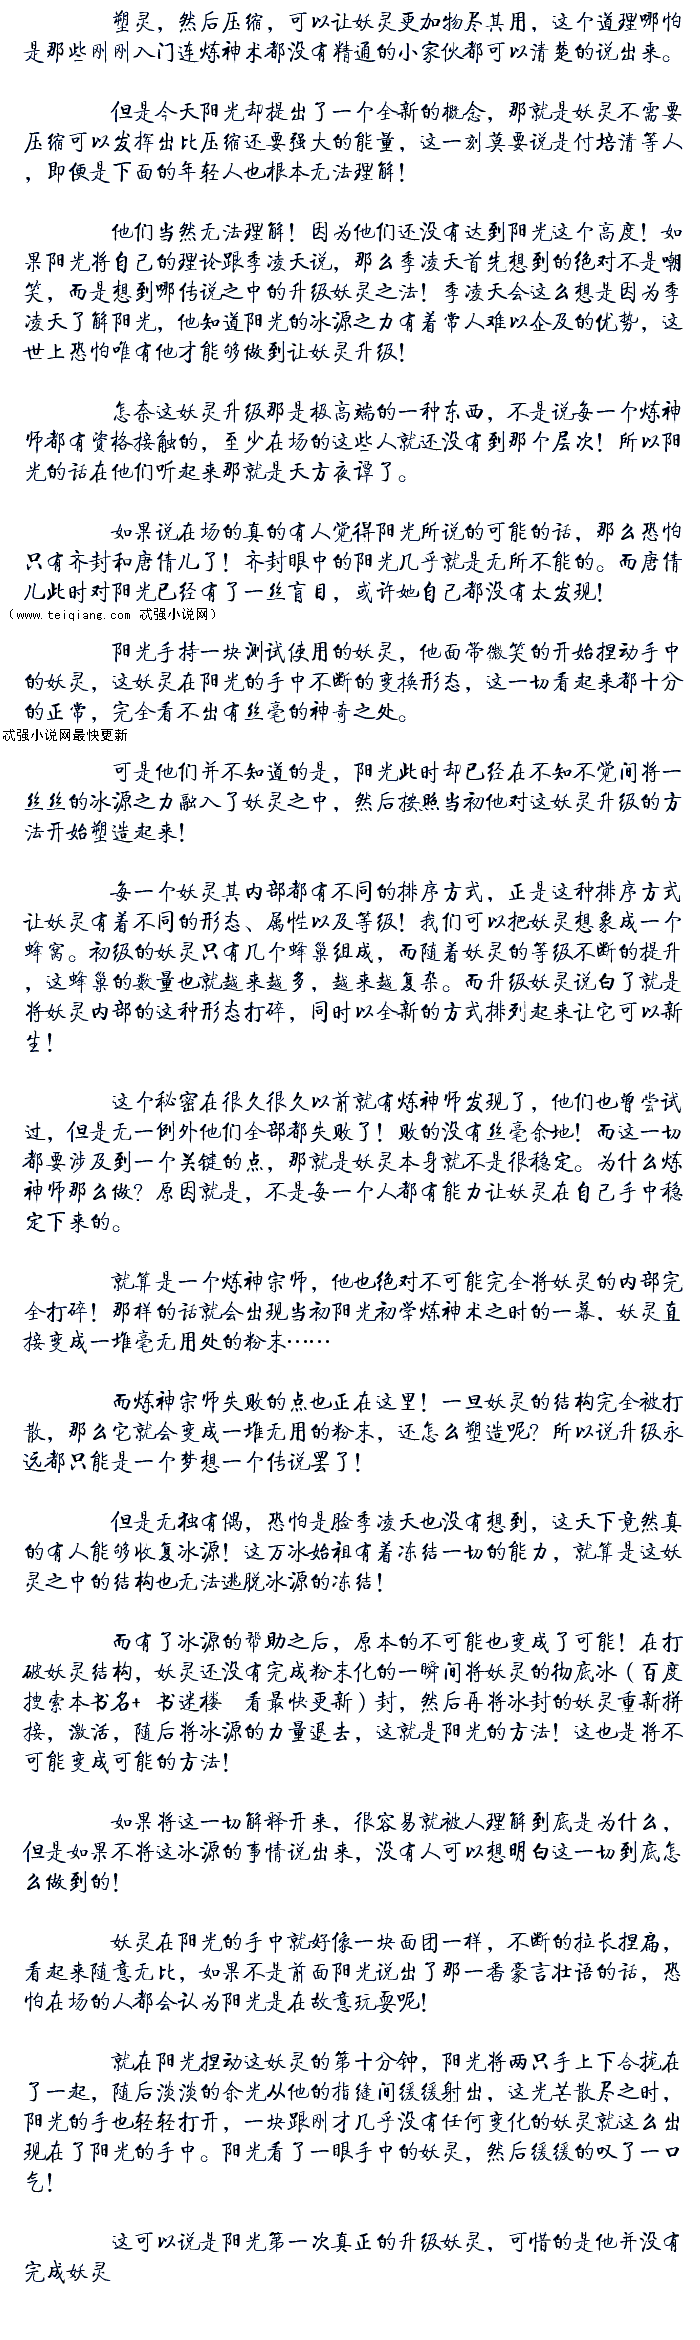 塑灵，然后压缩，可以让妖灵更加物尽其用，这个道理哪怕
是那些刚刚入门连炼神术都没有精通的小家伙都可以清楚的说出来。
但是今天阳光却提出了一个全新的概念，那就是妖灵不需要
压缩可以发挥出比压缩还要强大的能量，这一刻莫要说是付培清等人
，即便是下面的年轻人也根本无法理解！
他们当然无法理解！因为他们还没有达到阳光这个高度！如
果阳光将自己的理论跟季凌天说，那么季凌天首先想到的绝对不是嘲
笑，而是想到哪传说之中的升级妖灵之法！季凌天会这么想是因为季
凌天了解阳光，他知道阳光的冰源之力有着常人难以企及的优势，这
世上恐怕唯有他才能够做到让妖灵升级！
怎奈这妖灵升级那是极高端的一种东西，不是说每一个炼神
师都有资格接触的，至少在场的这些人就还没有到那个层次！所以阳
光的话在他们听起来那就是天方夜谭了。
如果说在场的真的有人觉得阳光所说的可能的话，那么恐怕
只有齐封和唐倩儿了！齐封眼中的阳光几乎就是无所不能的。而唐倩
儿此时对阳光已经有了一丝盲目，或许她自己都没有太发现！
（www.teiqiang.com 忒强小说网）
阳光手持一块测试使用的妖灵，他面带微笑的开始捏动手中
的妖灵，这妖灵在阳光的手中不断的变换形态，这一切看起来都十分
的正常，完全看不出有丝毫的神奇之处。
忒强小说网最快更新
可是他们并不知道的是，阳光此时却已经在不知不觉间将一
丝丝的冰源之力融入了妖灵之中，然后按照当初他对这妖灵升级的方
法开始塑造起来！
每一个妖灵其内部都有不同的排序方式，正是这种排序方式
让妖灵有着不同的形态、属性以及等级！我们可以把妖灵想象成一个
蜂窝。初级的妖灵只有几个蜂巢组成，而随着妖灵的等级不断的提升
，这蜂巢的数量也就越来越多，越来越复杂。而升级妖灵说白了就是
将妖灵内部的这种形态打碎，同时以全新的方式排列起来让它可以新
生！
这个秘密在很久很久以前就有炼神师发现了，他们也曾尝试
过，但是无一例外他们全部都失败了！败的没有丝毫余地！而这一切
都要涉及到一个关键的点，那就是妖灵本身就不是很稳定。为什么炼
神师那么做？原因就是，不是每一个人都有能力让妖灵在自己手中稳
定下来的。
就算是一个炼神宗师，他也绝对不可能完全将妖灵的内部完
全打碎！那样的话就会出现当初阳光初学炼神术之时的一幕，妖灵直
接变成一堆毫无用处的粉末……
而炼神宗师失败的点也正在这里！一旦妖灵的结构完全被打
散，那么它就会变成一堆无用的粉末，还怎么塑造呢？所以说升级永
远都只能是一个梦想一个传说罢了！
但是无独有偶，恐怕是脸季凌天也没有想到，这天下竟然真
的有人能够收复冰源！这万冰始祖有着冻结一切的能力，就算是这妖
灵之中的结构也无法逃脱冰源的冻结！
而有了冰源的帮助之后，原本的不可能也变成了可能！在打
破妖灵结构，妖灵还没有完成粉末化的一瞬间将妖灵的彻底冰（百度
搜索本书名+ 书迷楼 看最快更新）封，然后再将冰封的妖灵重新拼
接，激活，随后将冰源的力量退去，这就是阳光的方法！这也是将不
可能变成可能的方法！
如果将这一切解释开来，很容易就被人理解到底是为什么，
但是如果不将这冰源的事情说出来，没有人可以想明白这一切到底怎
么做到的！
妖灵在阳光的手中就好像一块面团一样，不断的拉长捏扁，
看起来随意无比，如果不是前面阳光说出了那一番豪言壮语的话，恐
怕在场的人都会认为阳光是在故意玩耍呢！
就在阳光捏动这妖灵的第十分钟，阳光将两只手上下合拢在
了一起，随后淡淡的余光从他的指缝间缓缓射出，这光芒散尽之时，
阳光的手也轻轻打开，一块跟刚才几乎没有任何变化的妖灵就这么出
现在了阳光的手中。阳光看了一眼手中的妖灵，然后缓缓的叹了一口
气！
这可以说是阳光第一次真正的升级妖灵，可惜的是他并没有
完成妖灵